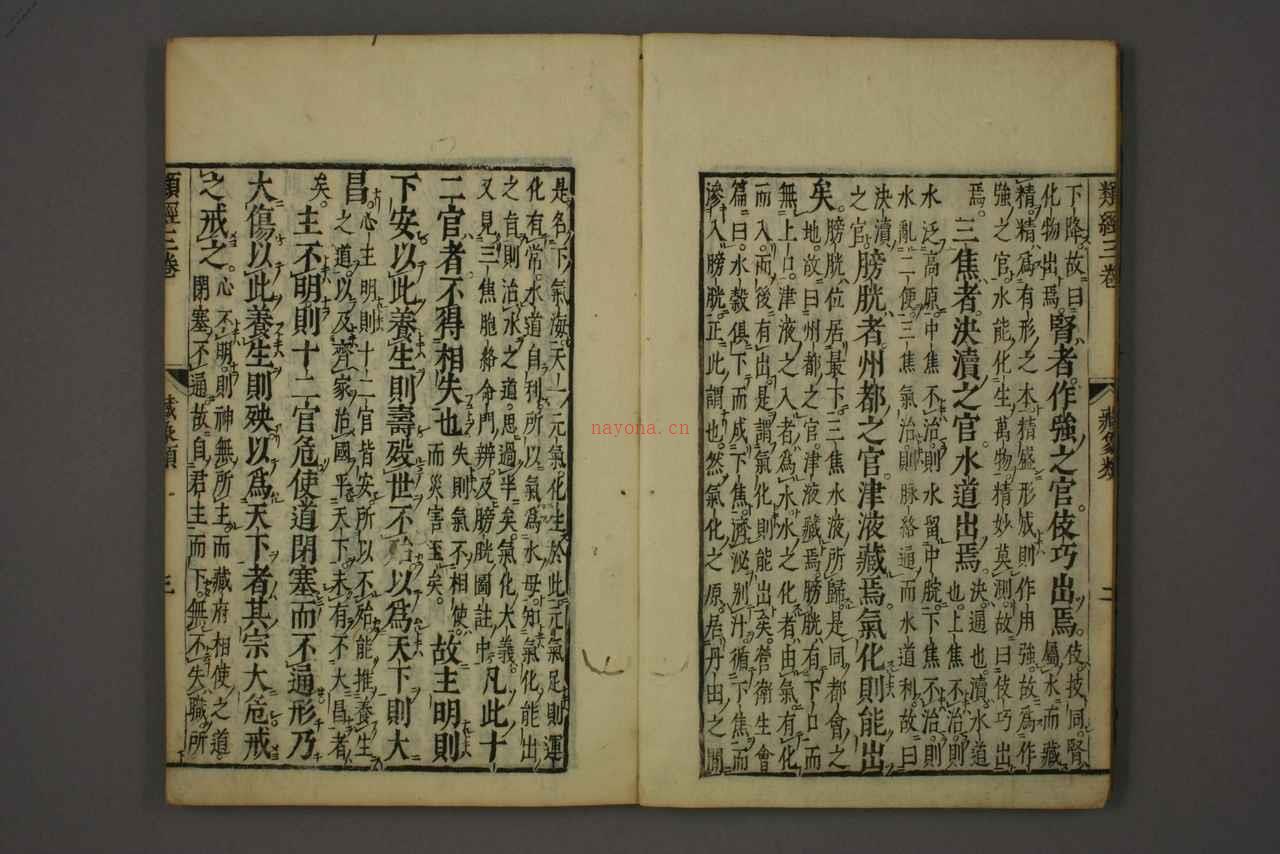 類經三卷 藏象類 二
下降。故曰
化物出焉。
腎者。作強之官。伎巧出焉。
伎技同。腎
屬水而藏
精。精爲有形之本。精盛形成則作用強。故爲作
強之官。水能化生萬物。精妙莫測。故曰伎巧出
焉。
三焦者。決瀆之官。水道出焉。
決通也。瀆水道
也。上焦不治。則
水泛高原。中焦不治則水留中脘。下焦不治。則
水亂二便。三焦氣治則脉絡通而水道利。故曰
決瀆
之官。
膀胱者州都之官。津液藏焉。氣化則能出
矣。
膀胱位居最下。三焦水液所歸。是同都會之
地。故曰州都之官。津液藏焉。膀胱有下口而
無上口。津液之入者爲水。水之化者由氣。有化
而入。而後有出。是謂氣化則能出矣。營衛生會
篇曰。水穀俱下而成下焦。濟泌別汁。循下焦而
滲入膀胱。正此謂也。然氣化之原。居丹田之間
是名下氣海。天一元氣。化生於此。元氣足則運
化有常。水道自利。所以氣爲水母。知氣化能出
之旨。則治水之道。思過半矣。氣化大義。
又見三焦胞絡命門辨。及膀胱圖註中。
凡此十
二官者。不得相失也。
失則氣不相使。
而災害至矣。
故主明則
下安。以此養生則壽。殁世不殆。以爲天下則大
昌。
心主明則十二官皆安。所以不殆。能推養生
之道。以及齊家治國平天下。未有不大昌者
矣。
主不明則十二官危。使道閉塞而不通。形乃
大傷。以此養生則殃。以爲天下者。其宗大危。戒
之戒之。
心不明。則神無所主。而藏府相使之道。
閉塞不通。故自君主而下。無不失職。所
類經三卷 藏象類 三
nayona.cn